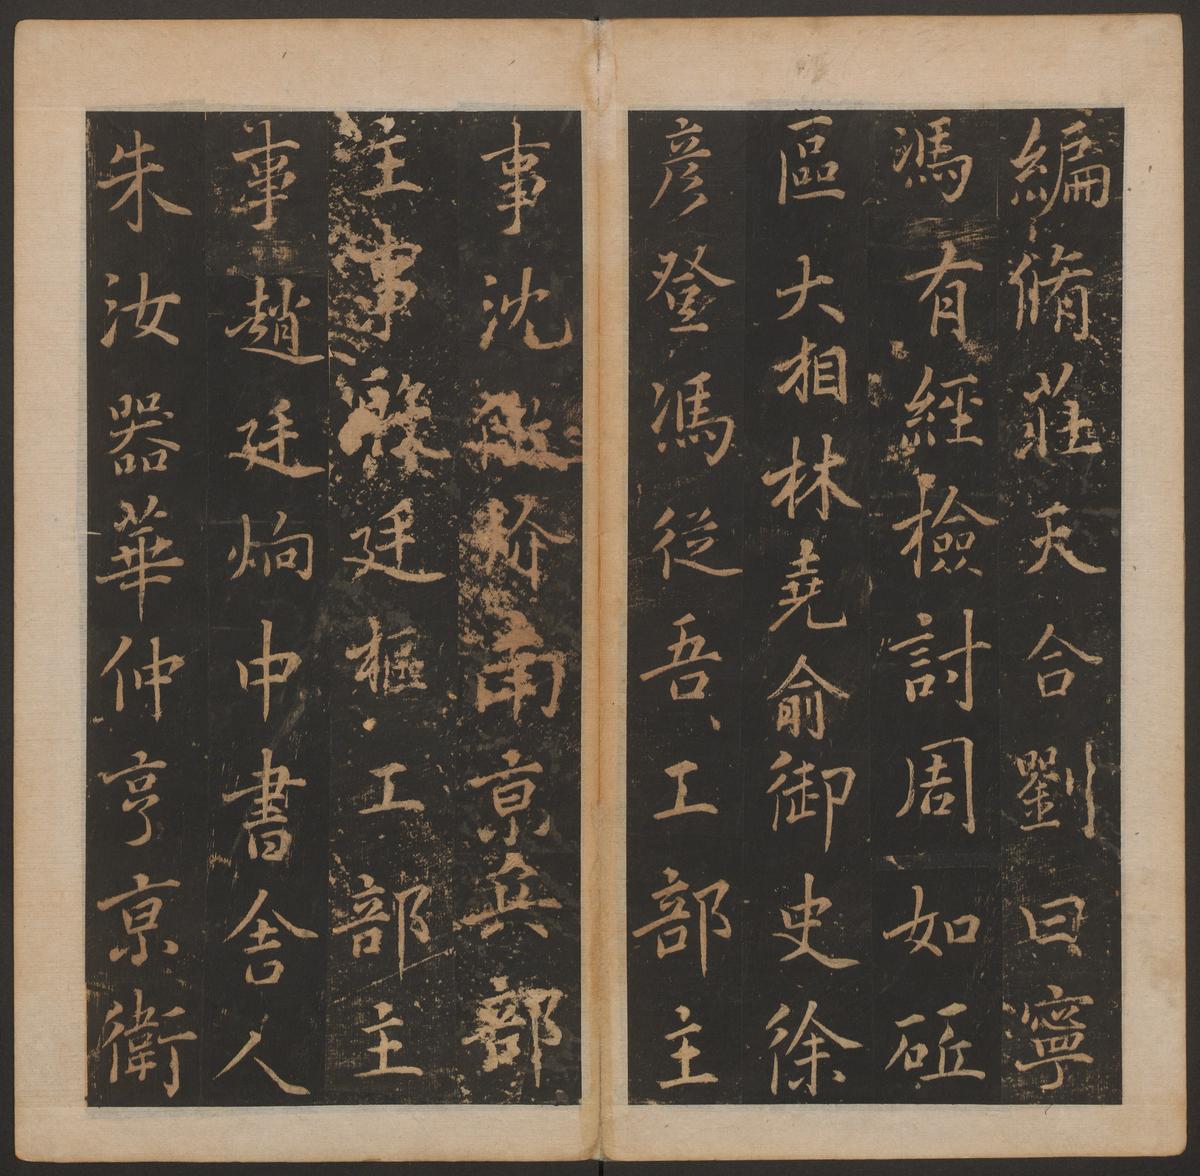 編脩莊天合劉曰寧
馮有經檢討周如砥
區大相林堯俞御史徐
彥登馮從吾工部主
事沈南京兵部
主事廷樞工部主
事趙廷炯中書舍人
朱汝器華仲亨京衛